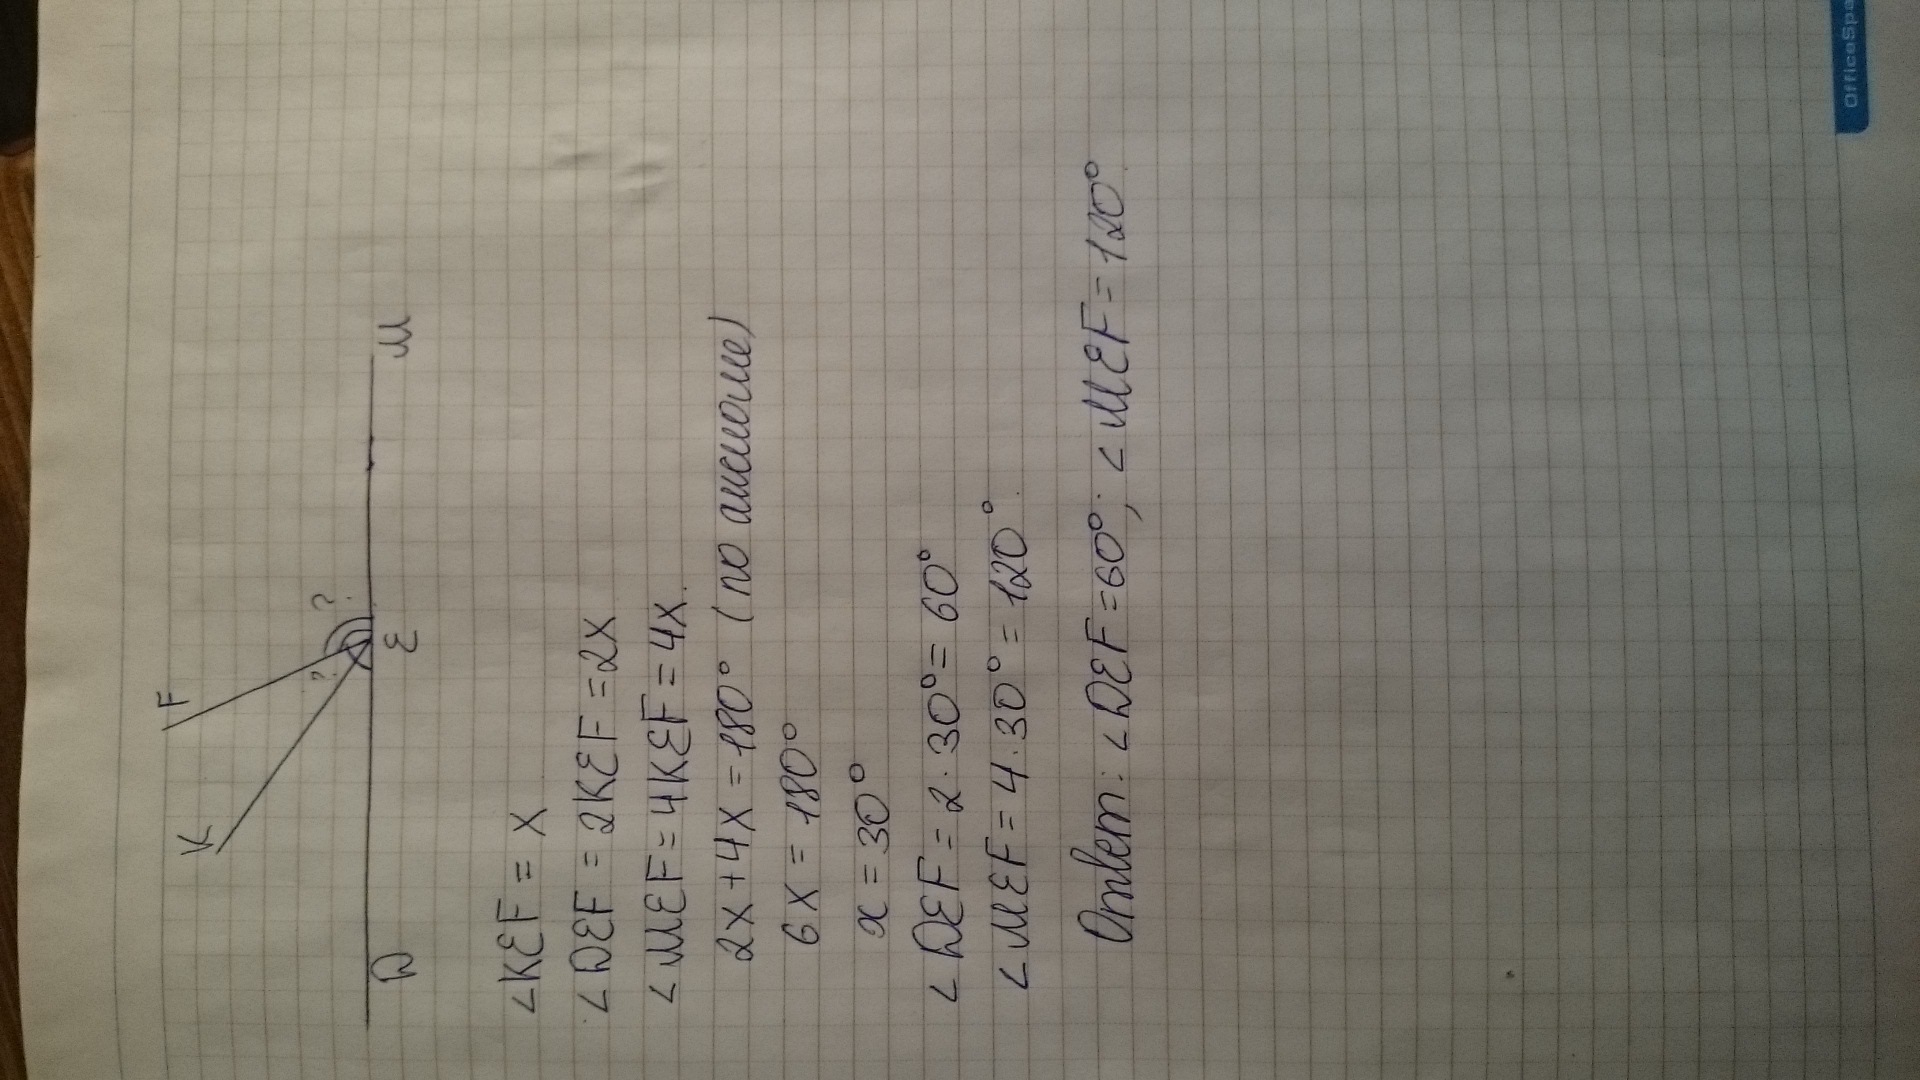 K F
? ?
D E M
∠KEF = x
∠DEF = 2KEF = 2x
∠MEF = 4KEF = 4x.
2x + 4x = 180° (по аксиоме)
6x = 180°
x = 30°
∠DEF = 2 · 30° = 60°
∠MEF = 4 · 30° = 120°.
Ответ: ∠DEF = 60°; ∠MEF = 120°.